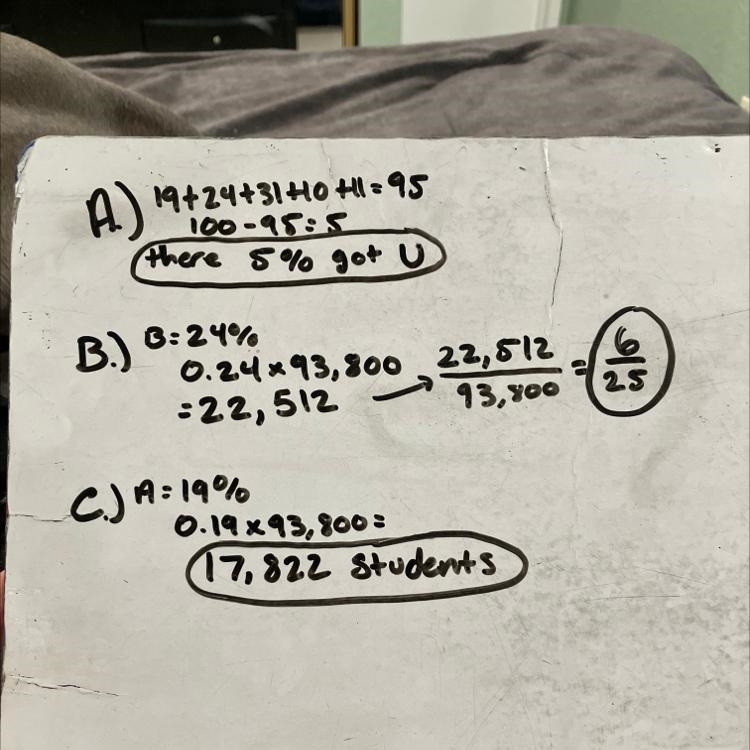 A.) 19+24+31+10+11=95
100-95=5
there 5% got U
B.) B=24%
0.24×93,800
=22,512 → 22,512/93,800 = 6/25
C.) A=19%
0.19×93,800=
17,822 students